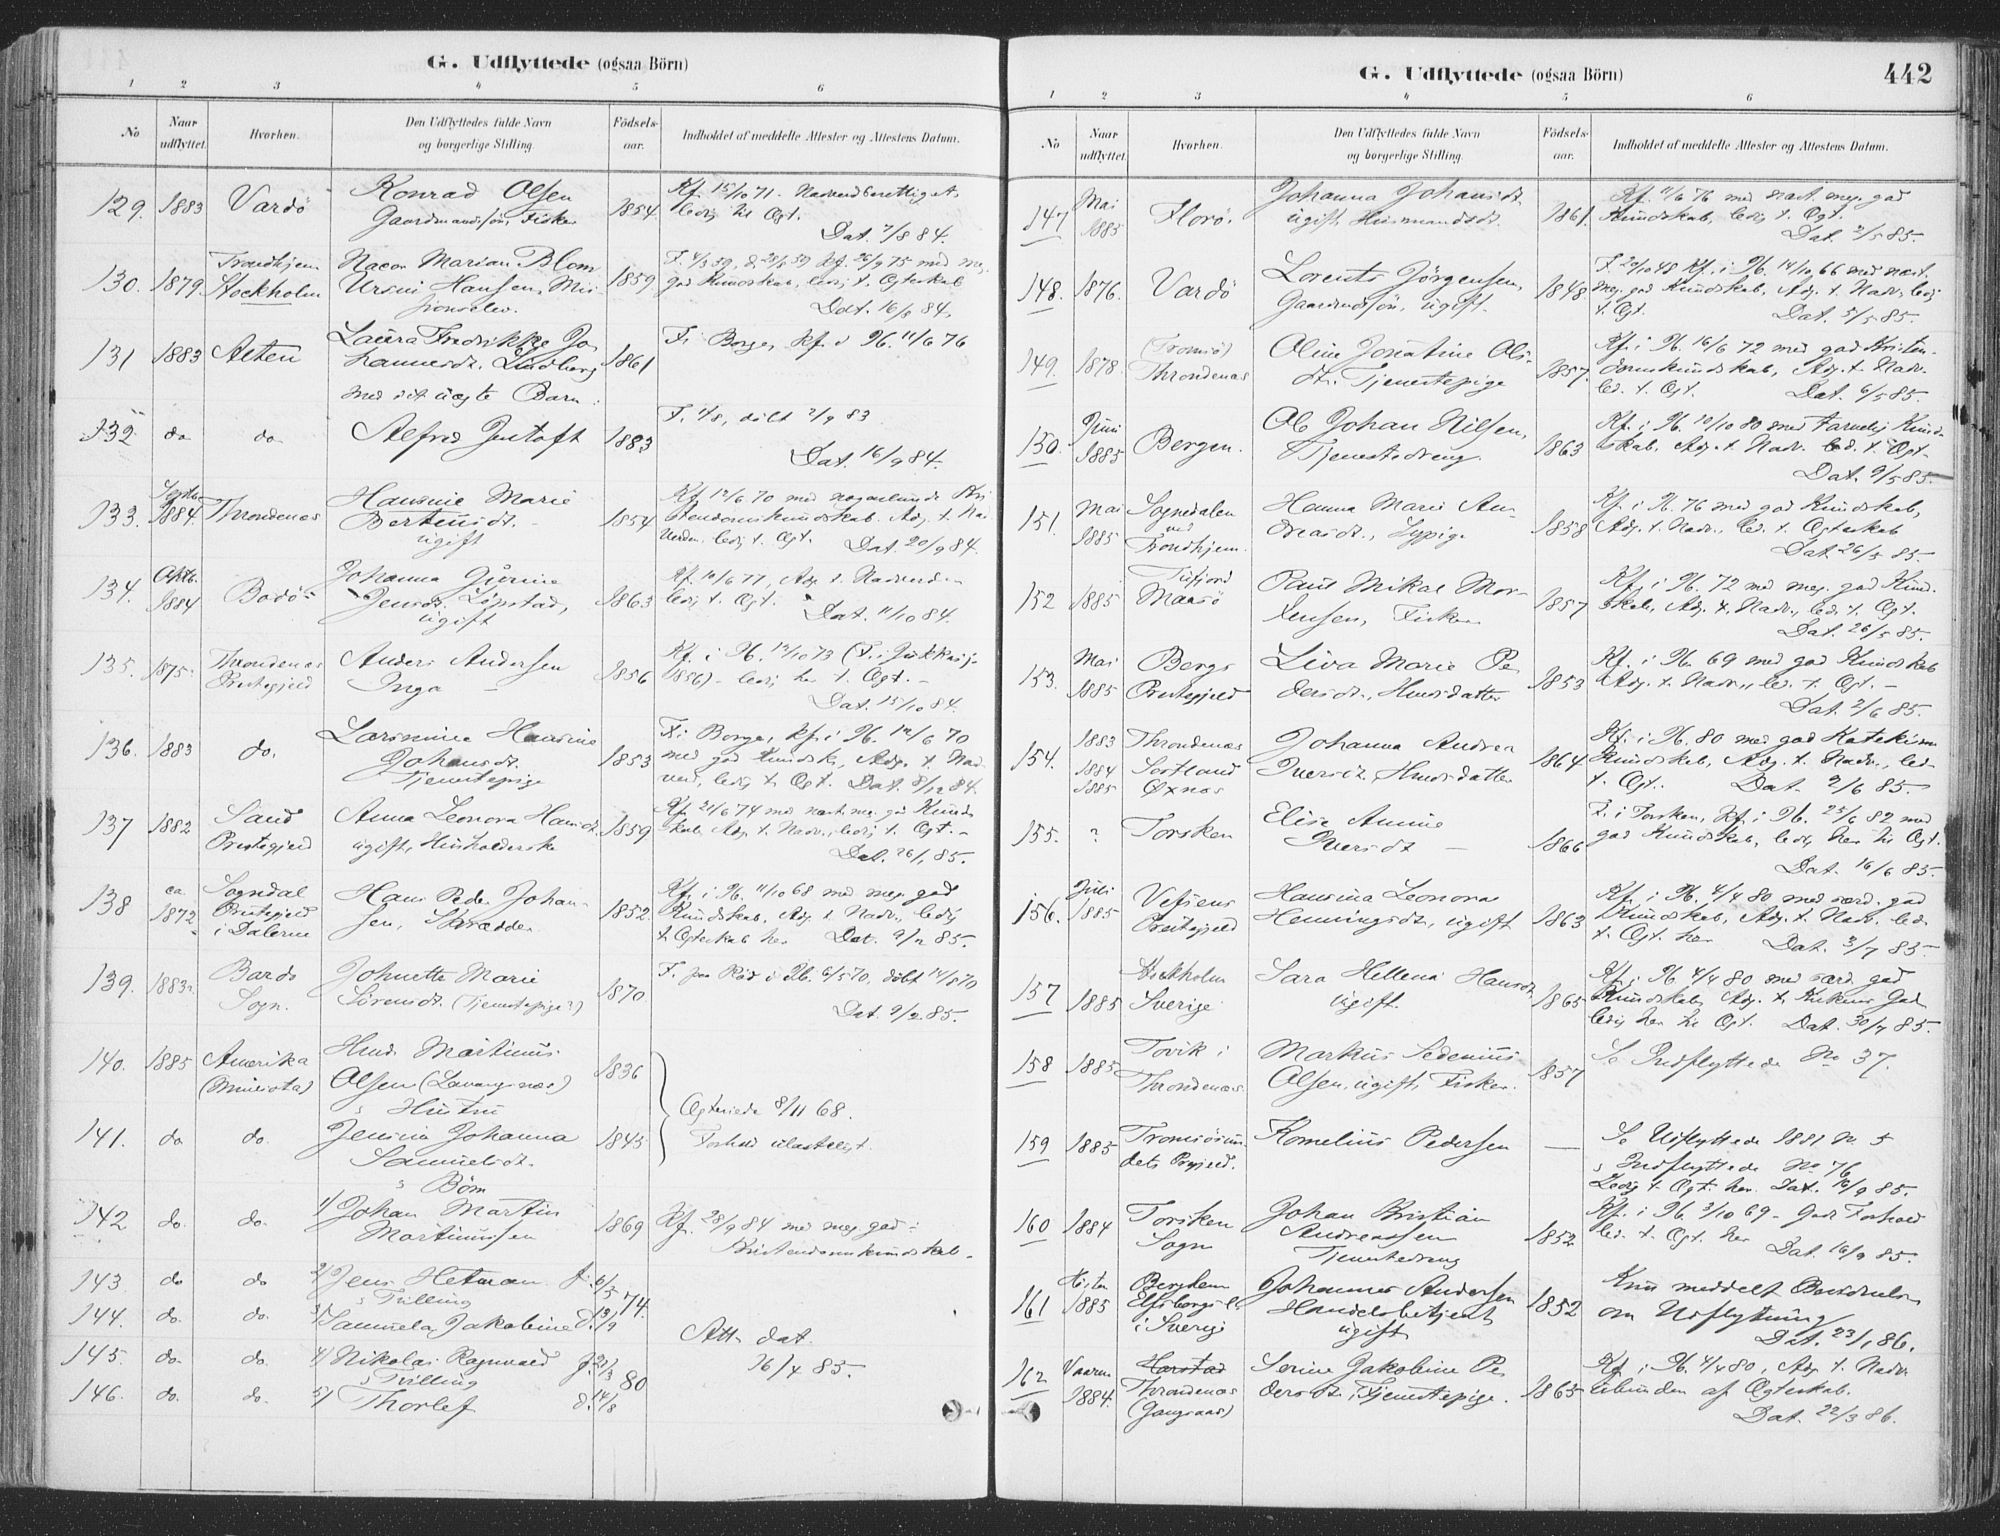 G. Udflyttede (ogsaa Börn)
1 2 3 4 5 6
No
Naar udflyttet.
Hvorhen.
Den Udflyttedes fulde Navn og borgerlige Stilling.
Födsels-aar.
Indholdet af meddelte Attester og Attestens Datum.
129. 1883 Vardö Konrad Olsen 1854. Kf. 15/10 71. Nadverdberettiget,
Gaardmandssön, Fisker ledig til Ægt.
Dat. 7/8 84.
130. 1879 Trondhjem Nacon Marian Blom 1859 F. 4/3 59, kf. 26/9 75 med
Stockholm Ursin Hansen, Mis- god Kundskab, ledig t. Ægteskab
sionselev. Dat. 16/8 84.
131 1883 Alten Laura Fredrikke Jo- 1861 F. i Borge, kf. i H. 11/6 76
hannesdt. Lindberg
med sit uægte Barn:
132 do do Alfred Gustaft 1883 F. 4/8, döbt 2/9 83
Dat. 16/9 84.
133. Septbr. 1884. Throndenæs Hansine Marie 1854 Kf. 12/6 70 med nogenlunde Kri-
Bertensdt. stendomskundskab. Adg. t. Na-
ugift verden. ledig t. Ægt. Dat. 20/9 84.
134. Oktb. 1884 Bodö Johanna Jörine 1863 Adg. t. Nadverden
Jensdt. Löpstad, ledig t. Ægt.
ugift Dat. 11/10 84.
135. 1875 Throndenæs Anders Andersen 1856 Kf. i H. 12/10 73
Præstegjeld Inga 1856) - ledig her t. Ægt.
Dat. 13/10 84.
136. 1883 do. Larsmine Hansine 1853 F. i Borge, kf. i H. 12/6 70
Johansdt. med god Kundsk., Adg. t. Nad-
Tjenestepige verd, ledig t. Ægt. Dat. 8/12 84.
137 1882 Sand Anna Leonora Hansdt. 1859 Kf. 21/6 74 med næst. meg. god Kund-
Præstegjeld ugift, Husholderske skab, Adg. t. Nadv., ledig t. Ægt.
Dat. 26/1 85.
138 ca 1872 Sogndal Hans Peder Johan- 1852. Kf. i H. 11/10 68 med meg. god
Præstegjeld sen, Skrædder Kundskab, Adg. t. Nadv., ledig
i Dalerne t. Ægteskab her Dat. 9/2 85.
139. 1883 Bardo Johnetta Marie 1870. F. paa Röd i H. 6/5 70, döbt 14/8 70
Sogn. Sörensdt. (Tjenestepige?)
Dat. 9/2 85.
140. 1885 Amerika Hmd. Martinus 1836
(Minesota) Olsen (Lavangsnæs)
s Hustru Ægteviede 8/11 68.
141. do do. Jensina Johanna 1845 Forhold ulasteligt.
Samuelsdt.
s Börn
142 do. do. 1/ Johan Martin 1869 Kf. 28/9 84 med meg. god
Martinussen Kristendomskundskab.
143 do do 2/ Jens Hetman f. 6/5 74.
s Tvilling
144. do. do. 3/ Samuela Jakobine d. 13/9
Att. dat.
145. do. do. 4/ Nikolai Ragnvald f. 21/3 80 16/4 85.
s Tvilling
146. do. do. 5/ Thorlef d. 14/8
G. Udflyttede (ogsaa Börn) 442
1 2 3 4 5 6
No
Naar udflyttet.
Hvorhen.
Den Udflyttedes fulde Navn og borgerlige Stilling.
Födsels-aar.
Indholdet af meddelte Attester og Attestens Datum.
147 Mai 1885 Florö. Johanna Johansdt. 1861. Kf. 11/6 76 med næst. meg. god
ugift, Husmandsdt. Kundskab, ledig t. Ægt.
Dat. 2/5 85.
148. 1876. Vardö Lorents Jörgensen, 1848 F. 20/10 48 Kf. i H. 14/10 66 med næst.
Gaardmdssön, ugift. meg. god Kundskab, Adg. t. Nadv., ledig
t. Ægt. Dat. 5/5 85.
149. 1878. (Tromsö) Oline Jonatine Ols- 1857. Kf. i H. 16/6 72 med god Kristen-
Throndenæs dt. Tjenestepige domskundskab, Adg. t. Nadv.
led. t. Ægt. Dat. 6/5 85.
150. Juni 1885 Bergen. Ole Johan Nilsen, 1863 Kf. i H. 10/10 80 med tarvelig Kund-
Tjenestedreng skab, Adg. t. Nadv. led. t. Ægt.
Dat. 9/5 85.
151. Mai 1885 Sognedalen Hanna Marie An- 1858 Kf. i H. 76 med god Kundskab,
ved dreasdt., Adg. t. Nadv., led. t. Ægteskab
Trondhjem. Dat. 26/5 85
152 1885 Tufjord Paul Mikal Mor- 1857 Kf. i H. 72 med meg. god Kund-
Maasö tensen, Fisker skab, Adg. t. Nadv., led. t. Ægt.
Dat. 26/5 85.
153. Mai 1885 Bergs Liva Marie Pe- 1853 Kf. i H. 69 med god Kundskab
Præstegjeld dersdt., Husmdsdatter Adg. t. Nadv., led. t. Ægt.
Dat. 2/6 85.
154. 1883 Throndenæs Johanna Andrea 1864 Kf. i H. 80 med god Katekism.
1884 Sortland Iversdt., Husmdsdatter Kundskab, Adg. t. Nadv., led.
1885 Öxnæs t. Ægt. Dat. 9/6 85.
155. ? Torsken Elise Annine 1866 F. i Torsken, Kf. i H. 25/6 82 med
Iversdt god Kundskab, ledig her til Ægt.
Dat. 16/6 85.
156. Juli 1885 Vefsens Hansina Leonora 1863 Kf. i H. 4/4 80 med særd. god
Præstegjeld Henningsdt, ugift Kundskab, Adg. t. Nadv. led.
t. Ægt. her Dat. 3/7 85.
157 1885 Stockholm Sara Hellena Hansdt 1865 Kf. i H. 4/4 80 med særd. god
Sverige ugift. Kundskab, Adg. t. Kirkens God
ledig her til Ægt. Dat. 30/7 85.
158 1885 Tovik i Markus Sedenius 1857 Se Indflyttede No 37.
Throndenæs. Olsen, ugift, Fisker.
159 1885 Tromsösun- Kornelius Pedersen — Se Udflyttede 1881 N. 5
dets Prgjeld. s Indflyttede No 76
Ledig t. Ægt. her. Dat. 16/9 85.
160 1884 Torsken Johan Kristian 1852 Kf. i H. 3/10 69 - Godt Forhold
Sogn Andreassen led. t. Ægt. her
Tjenestedreng Dat. 16/9 85.
161 Hösten 1885 Berghem Johannes Andersen 1852 Kun meddelt Bevidnelse
Elfsborgs l. Handelsbetjent om Udflytning
i Sverige ugift Dat. 23/1 86.
162 Vaaren 1884. Harstad Serine Jakobine Pe- 1865 Kf. i H. 4/4 80, Adg. t. Nadv.
Throndenæs dersdt., Tjenestepige. ubunden af Ægteskab.
(Gangsaas) Dat. 22/3 86.